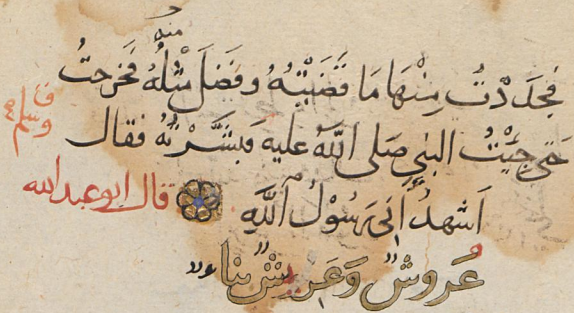 منه
فجددت منها ما قضيته وفضل مثله فخرجت
حتى جئت النبي صلى الله عليه وسلم فبشرته فقال
اشهد اني رسول الله قال ابو عبد الله
عروش وعريش بنا